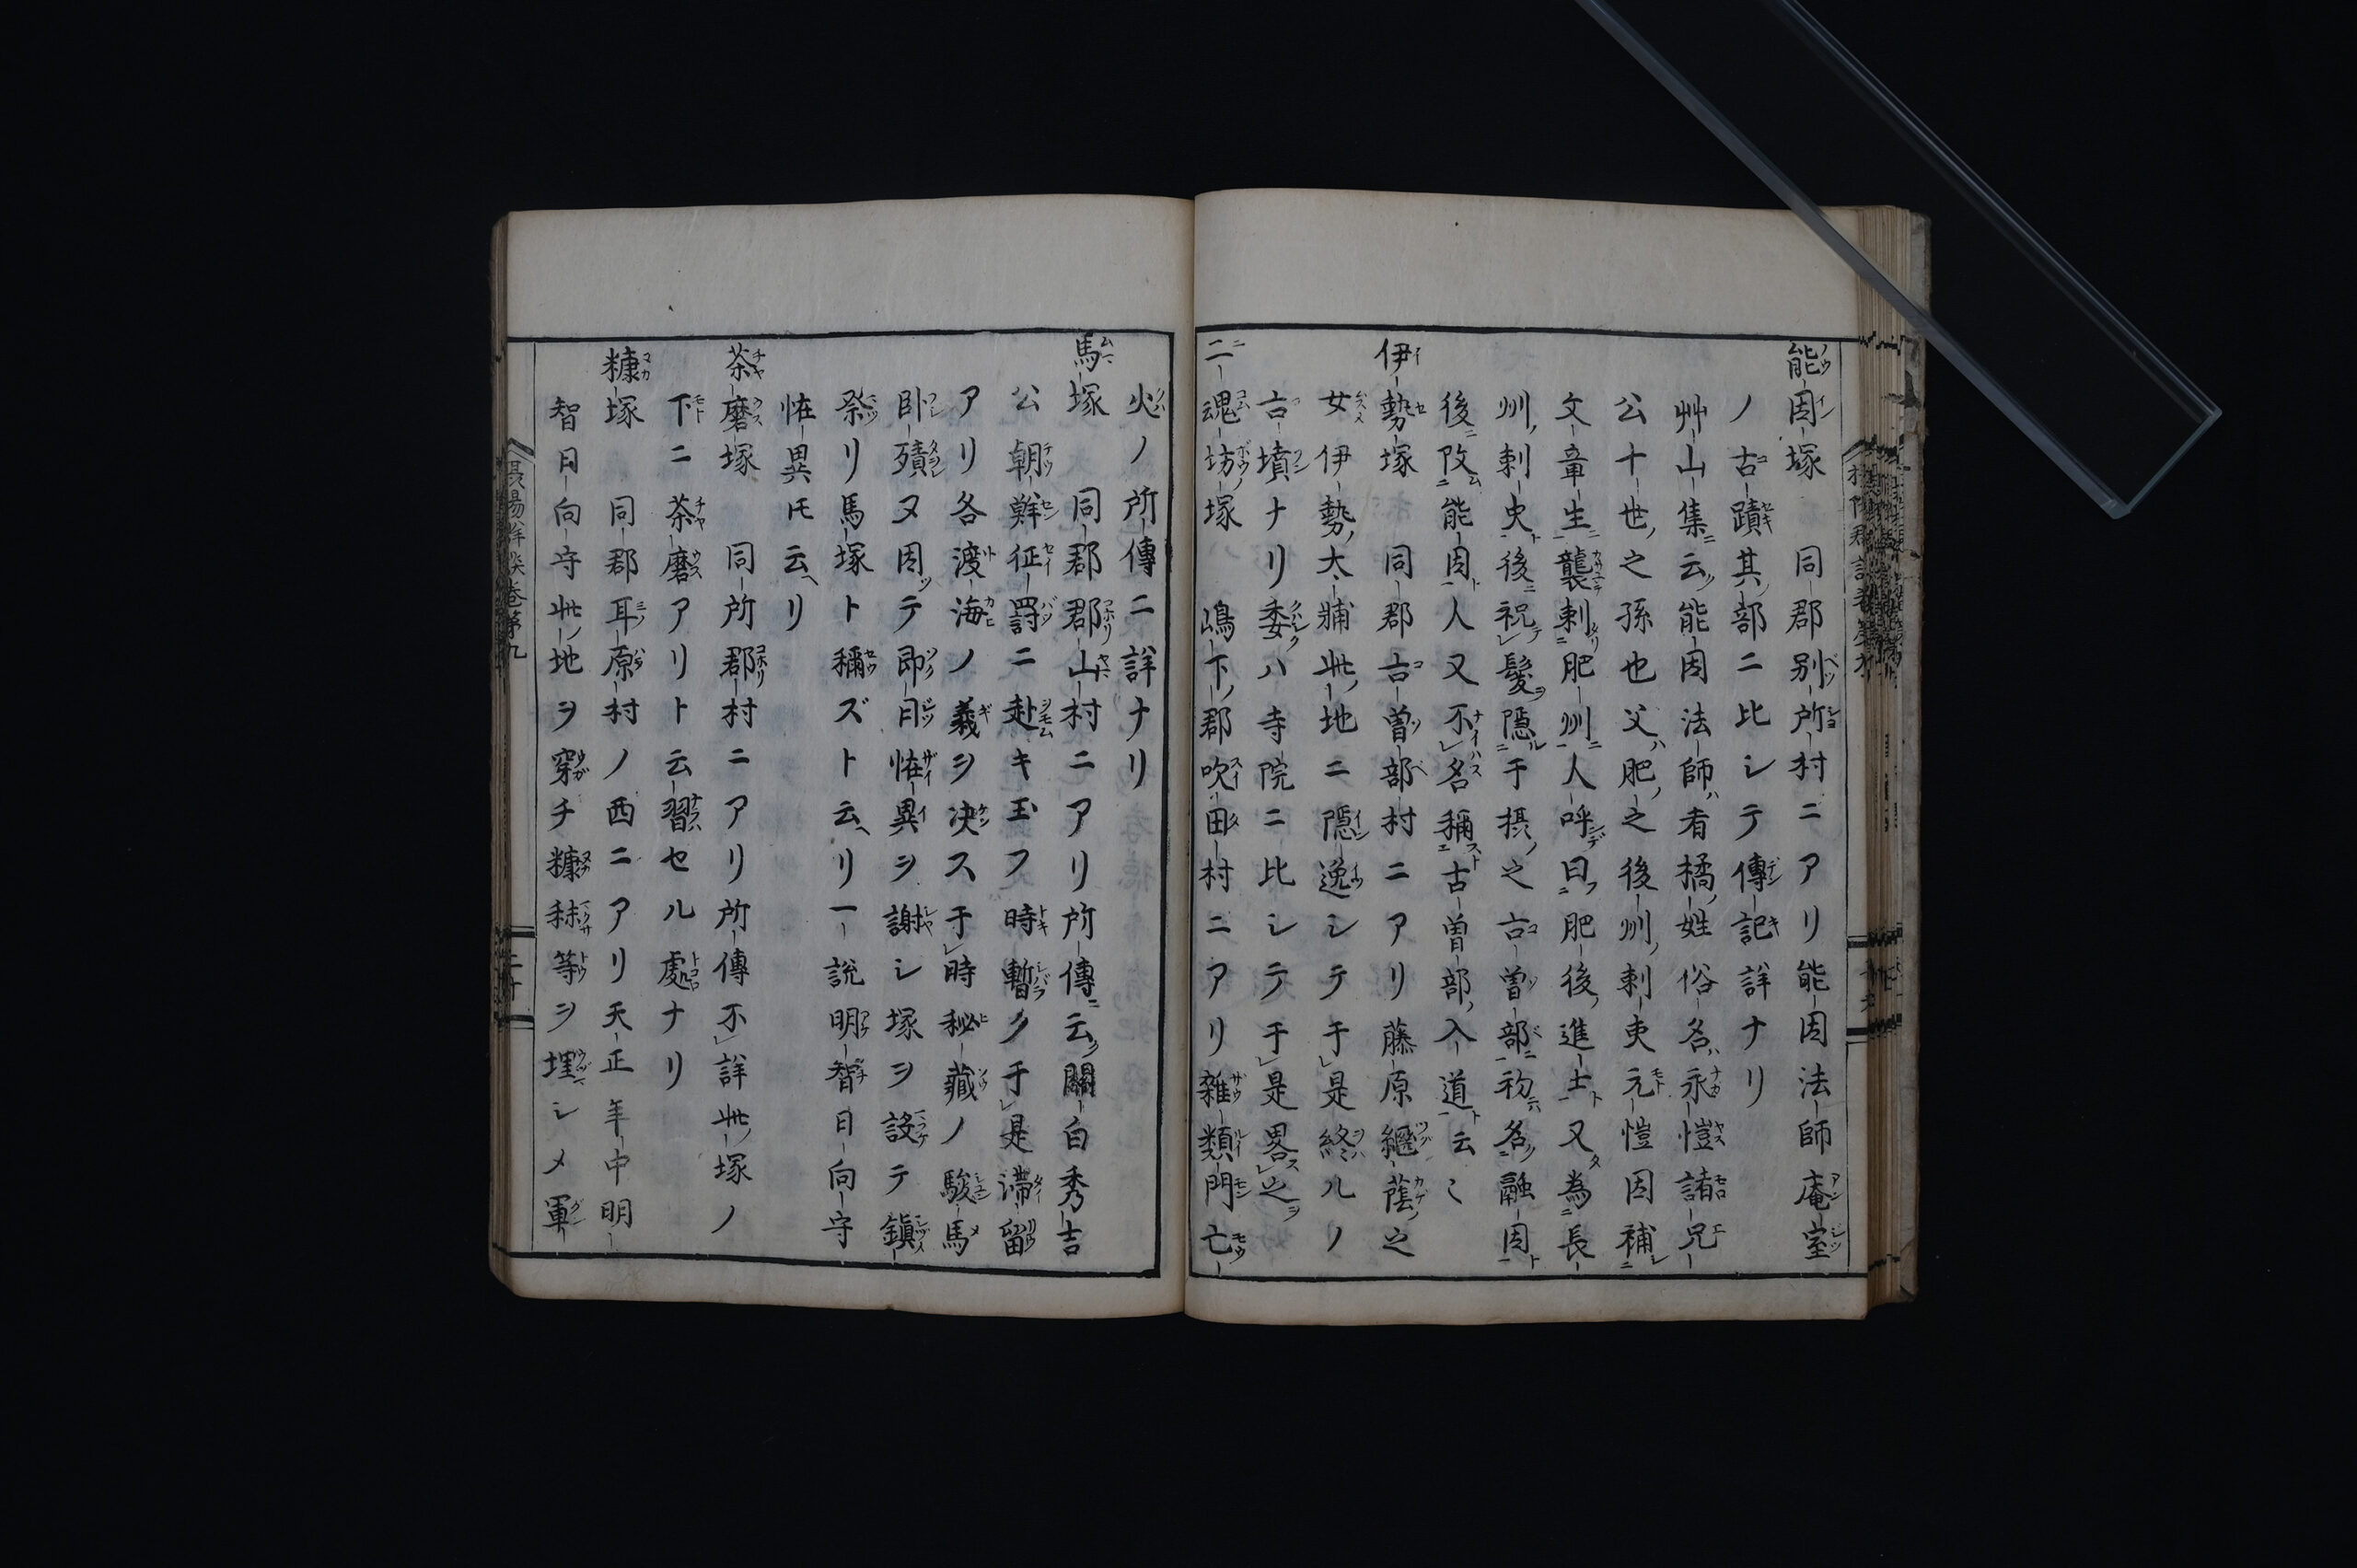 能因塚 同郡別所村ニアリ能因法師庵室
ノ古蹟其部ニ比シテ傳記詳ナリ
艸山集云能因法師者橘姓俗名永愷諸兄
公十世之孫也父肥之後州刺吏元愷因補
文章生襲刺肥州人呼曰肥後進士又為長
州刺史後祝髮隱于摂之古曽部初名融因
後改能因人又不名稱古曽部入道云〻
伊勢塚 同郡古曽部村ニアリ藤原繼蔭之
女伊勢大輔此地ニ隱逸シテ于是終ルノ
古墳ナリ委ハ寺院ニ比シテ于是畧之
二魂坊塚 嶋下郡吹田村ニアリ雜類門亡
火ノ所傳ニ詳ナリ
馬塚 同郡郡山村ニアリ所傳云關白秀吉
公朝鮮征罸ニ赴キ玉フ時暫ク于是滞留
アリ各渡海ノ義ヲ决ス于時秘藏ノ駿馬
卧殰ヌ因テ即日恠異ヲ謝シ塚ヲ設テ鎭
祭リ馬塚ト稱ズト云リ一說明智日向守
恠異モ云リ
茶磨塚 同所郡村ニアリ所傳不詳此塚ノ
下ニ茶磨アリト云習セル處ナリ
糠塚 同郡耳原村ノ西ニアリ天正年中明
智日向守此地ヲ穿チ糠秣等ヲ埋シメ軍
摂陽群談卷第九
二十